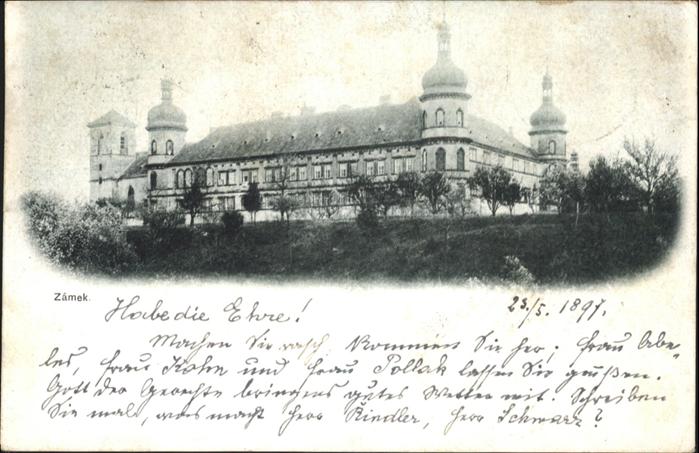 Zámek.
Habe die Ehre! 23./5. 1897.
Machen Sie rasch. Kommen Sie her; Frau Abe-
les, Frau Kohn und Frau Pollak lassen Sie grüßen.
Gott der Gerechte bringens gutes Wetter mit. Schreiben
Sie mal, was macht Herr Rindler, Herr Schwarz?